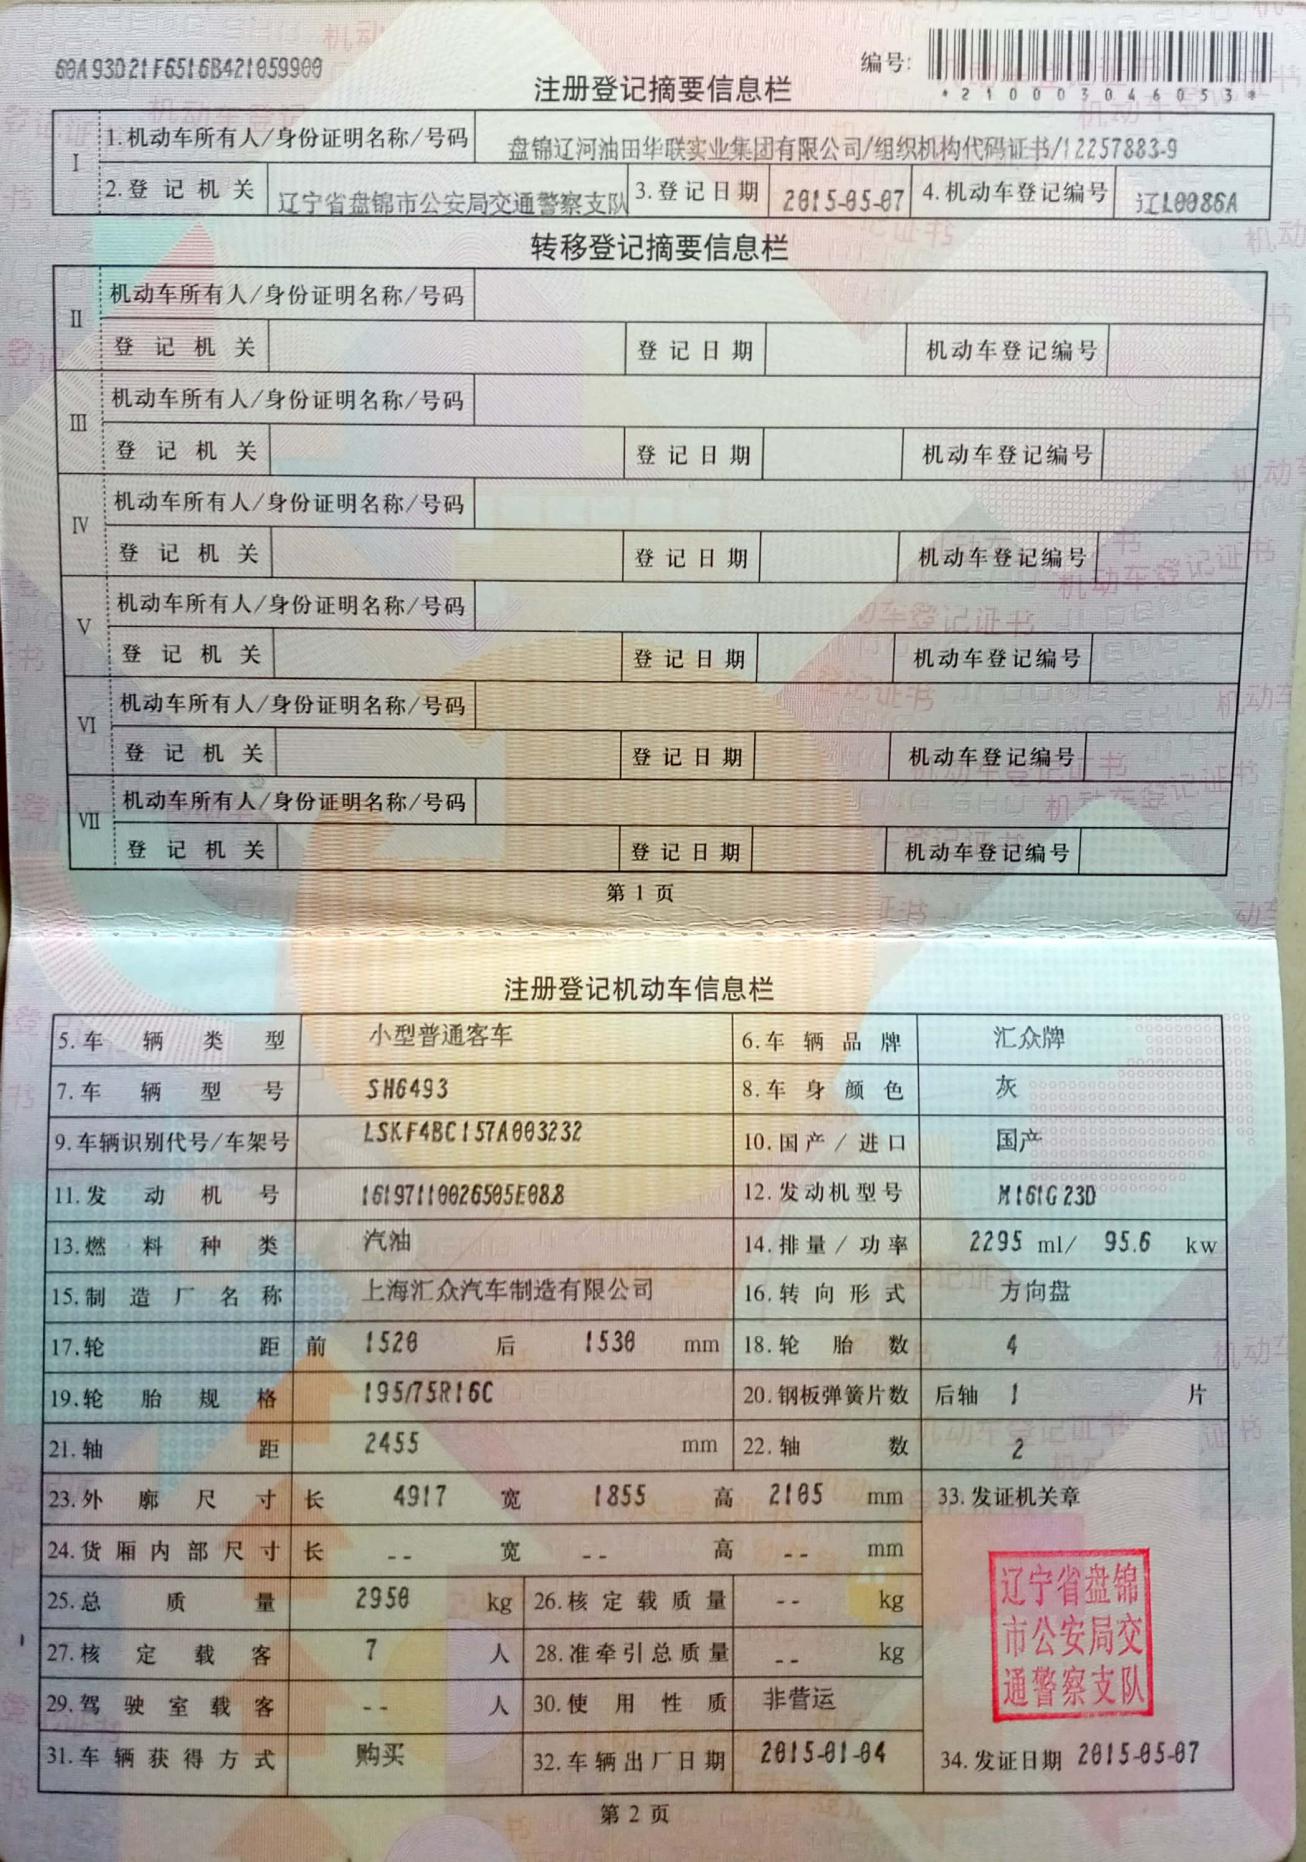 60A93D21F6516B421059900
编号:
*210003046053*
注册登记摘要信息栏
I
1.机动车所有人/身份证明名称/号码 盘锦辽河油田华联实业集团有限公司/组织机构代码证书/12257883-9
2.登记机关 辽宁省盘锦市公安局交通警察支队 3.登记日期 2015-05-07 4.机动车登记编号 辽L0086A
转移登记摘要信息栏
II
机动车所有人/身份证明名称/号码
登记机关 登记日期 机动车登记编号
III
机动车所有人/身份证明名称/号码
登记机关 登记日期 机动车登记编号
IV
机动车所有人/身份证明名称/号码
登记机关 登记日期 机动车登记编号
V
机动车所有人/身份证明名称/号码
登记机关 登记日期 机动车登记编号
VI
机动车所有人/身份证明名称/号码
登记机关 登记日期 机动车登记编号
VII
机动车所有人/身份证明名称/号码
登记机关 登记日期 机动车登记编号
第 1 页
注册登记机动车信息栏
5.车辆类型 小型普通客车 6.车辆品牌 汇众牌
7.车辆型号 SH6493 8.车身颜色 灰
9.车辆识别代号/车架号 LSKF4BC157A003232 10.国产/进口 国产
11.发动机号 16197110026505E088 12.发动机型号 M161G23D
13.燃料种类 汽油 14.排量/功率 2295 ml/ 95.6 kw
15.制造厂名称 上海汇众汽车制造有限公司 16.转向形式 方向盘
17.轮距 前 1520 后 1530 mm 18.轮胎数 4
19.轮胎规格 195/75R16C 20.钢板弹簧片数 后轴 1 片
21.轴距 2455 mm 22.轴数 2
23.外廓尺寸 长 4917 宽 1855 高 2105 mm 33.发证机关章
24.货厢内部尺寸 长 -- 宽 -- 高 -- mm
25.总质量 2950 kg 26.核定载质量 -- kg
27.核定载客 7 人 28.准牵引总质量 -- kg
29.驾驶室载客 -- 人 30.使用性质 非营运
辽宁省盘锦
市公安局交
通警察支队
31.车辆获得方式 购买 32.车辆出厂日期 2015-01-04 34.发证日期 2015-05-07
第 2 页